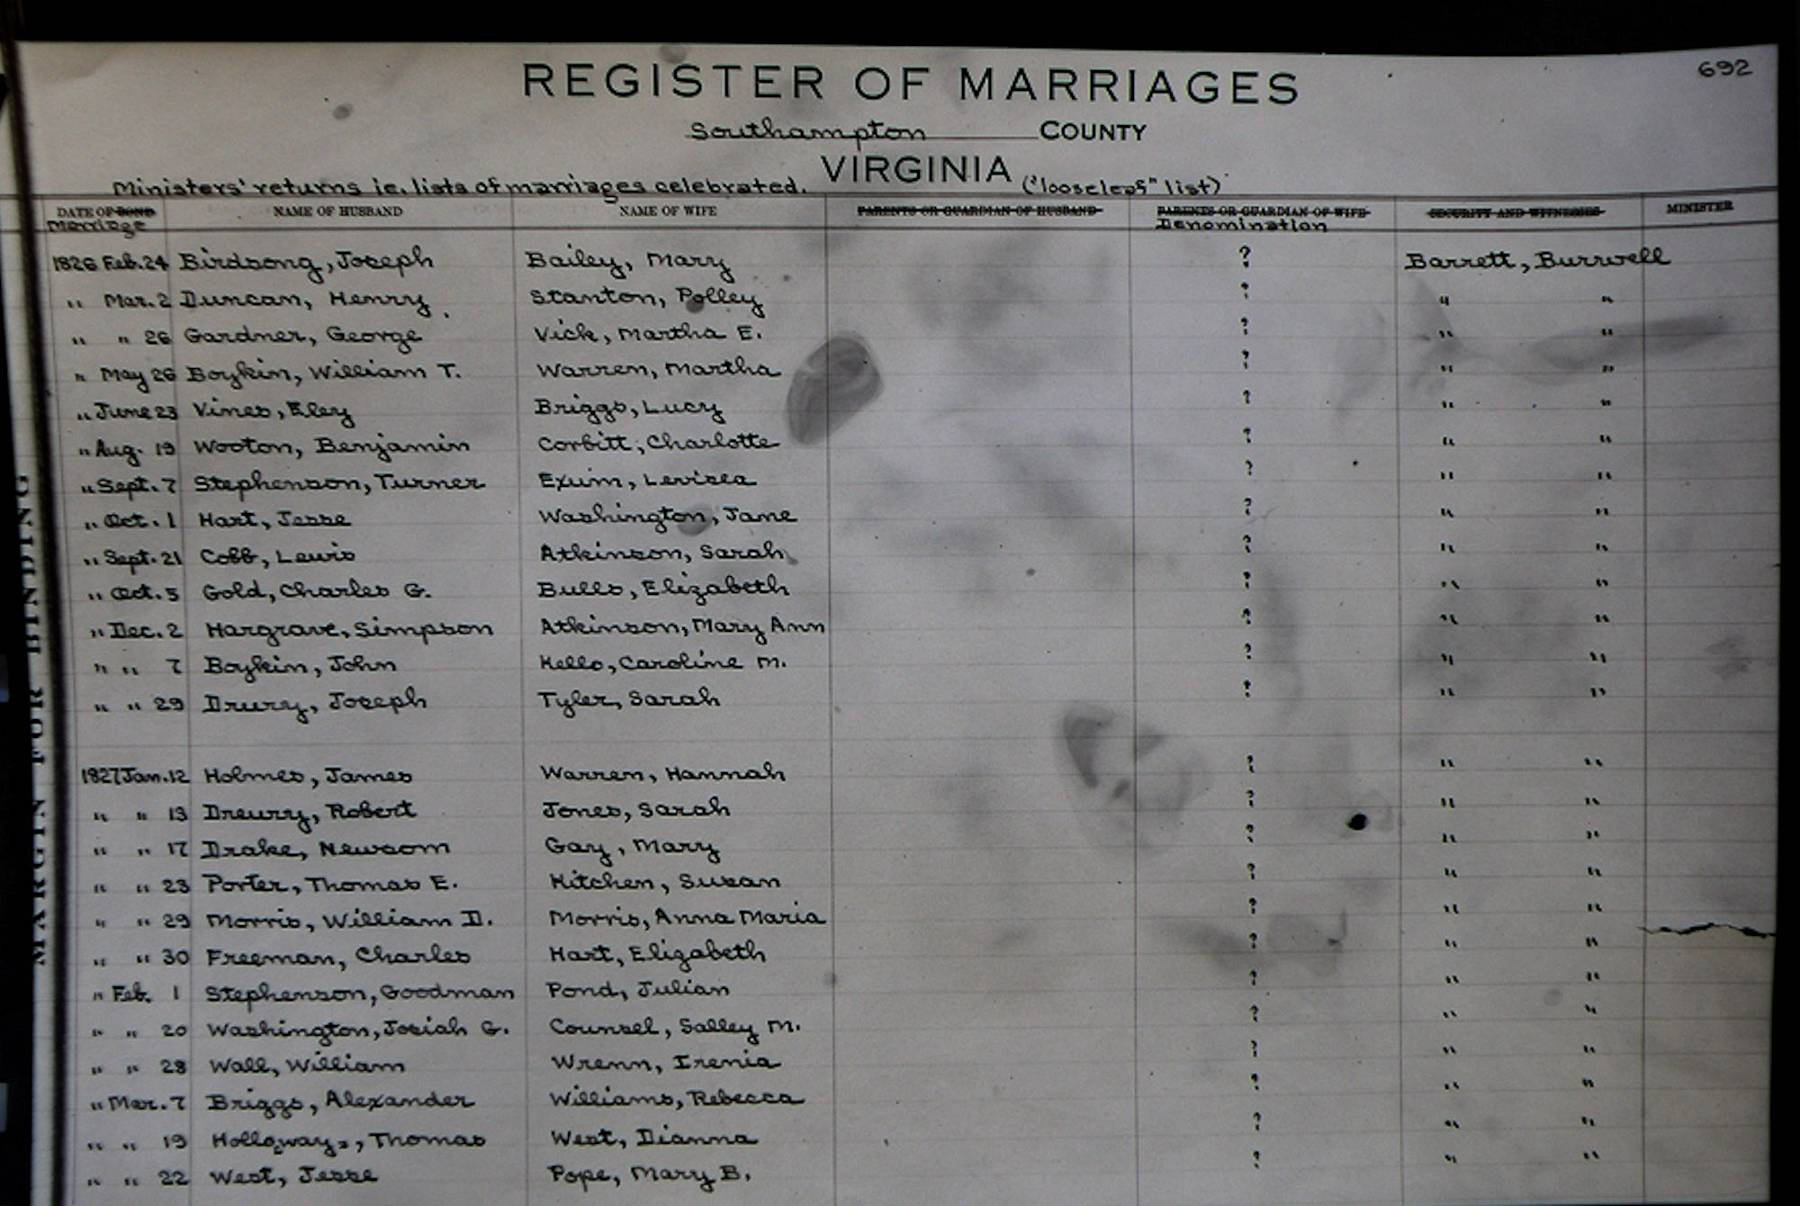 692
REGISTER OF MARRIAGES
Southampton COUNTY
VIRGINIA
Ministers' returns ie. lists of marriages celebrated. ("looseleaf" list)
DATE OF BOND NAME OF HUSBAND NAME OF WIFE PARENTS OR GUARDIAN OF HUSBAND PARENTS OR GUARDIAN OF WIFE SECURITY AND WITNESSES MINISTER
Marriage Denomination
1826 Feb. 24 Birdsong, Joseph Bailey, Mary ? Barrett, Burrwell
" Mar. 2 Duncan, Henry Stanton, Polley ? " "
" " 26 Gardner, George Vick, Martha E. ? " "
" May 26 Boykin, William T. Warren, Martha ? " "
" June 23 Vines, Eley Briggs, Lucy ? " "
" Aug. 19 Wooton, Benjamin Corbitt, Charlotte ? " "
" Sept. 7 Stephenson, Turner Exum, Levisea ? " "
" Oct. 1 Hart, Jesse Washington, Jane ? " "
" Sept. 21 Cobb, Lewis Atkinson, Sarah ? " "
" Oct. 5 Gold, Charles G. Bulls, Elizabeth ? " "
" Dec. 2 Hargrave, Simpson Atkinson, Mary Ann ? " "
" " 7 Boykin, John Kello, Caroline M. ? " "
" " 29 Drury, Joseph Tyler, Sarah ? " "
1827 Jan. 12 Holmes, James Warren, Hannah ? " "
" " 13 Dreury, Robert Jones, Sarah ? " "
" " 17 Drake, Newsom Gay, Mary ? " "
" " 23 Porter, Thomas E. Kitchen, Susan ? " "
" " 29 Morris, William D. Morris, Anna Maria ? " "
" " 30 Freeman, Charles Hart, Elizabeth ? " "
" Feb. 1 Stephenson, Goodman Pond, Julian ? " "
" " 20 Washington, Josiah G. Counsel, Salley M. ? " "
" " 28 Wall, William Wrenn, Irenia ? " "
" Mar. 7 Briggs, Alexander Williams, Rebecca ? " "
" " 19 Holloway, Thomas West, Dianna ? " "
" " 22 West, Jesse Pope, Mary B. ? " "
MARGIN FOR BINDING